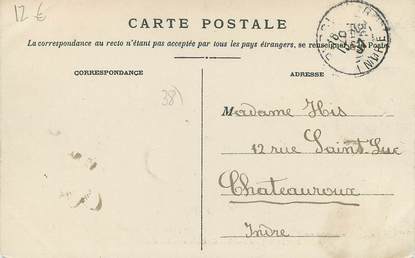 12 €
CARTE POSTALE
La correspondance au recto n'étant pas acceptée par tous les pays étrangers, se renseigner à la Poste.
CORRESPONDANCE
ADRESSE
38)
Madame His
12 rue Saint-Luc
Châteauroux
Indre
INDRE